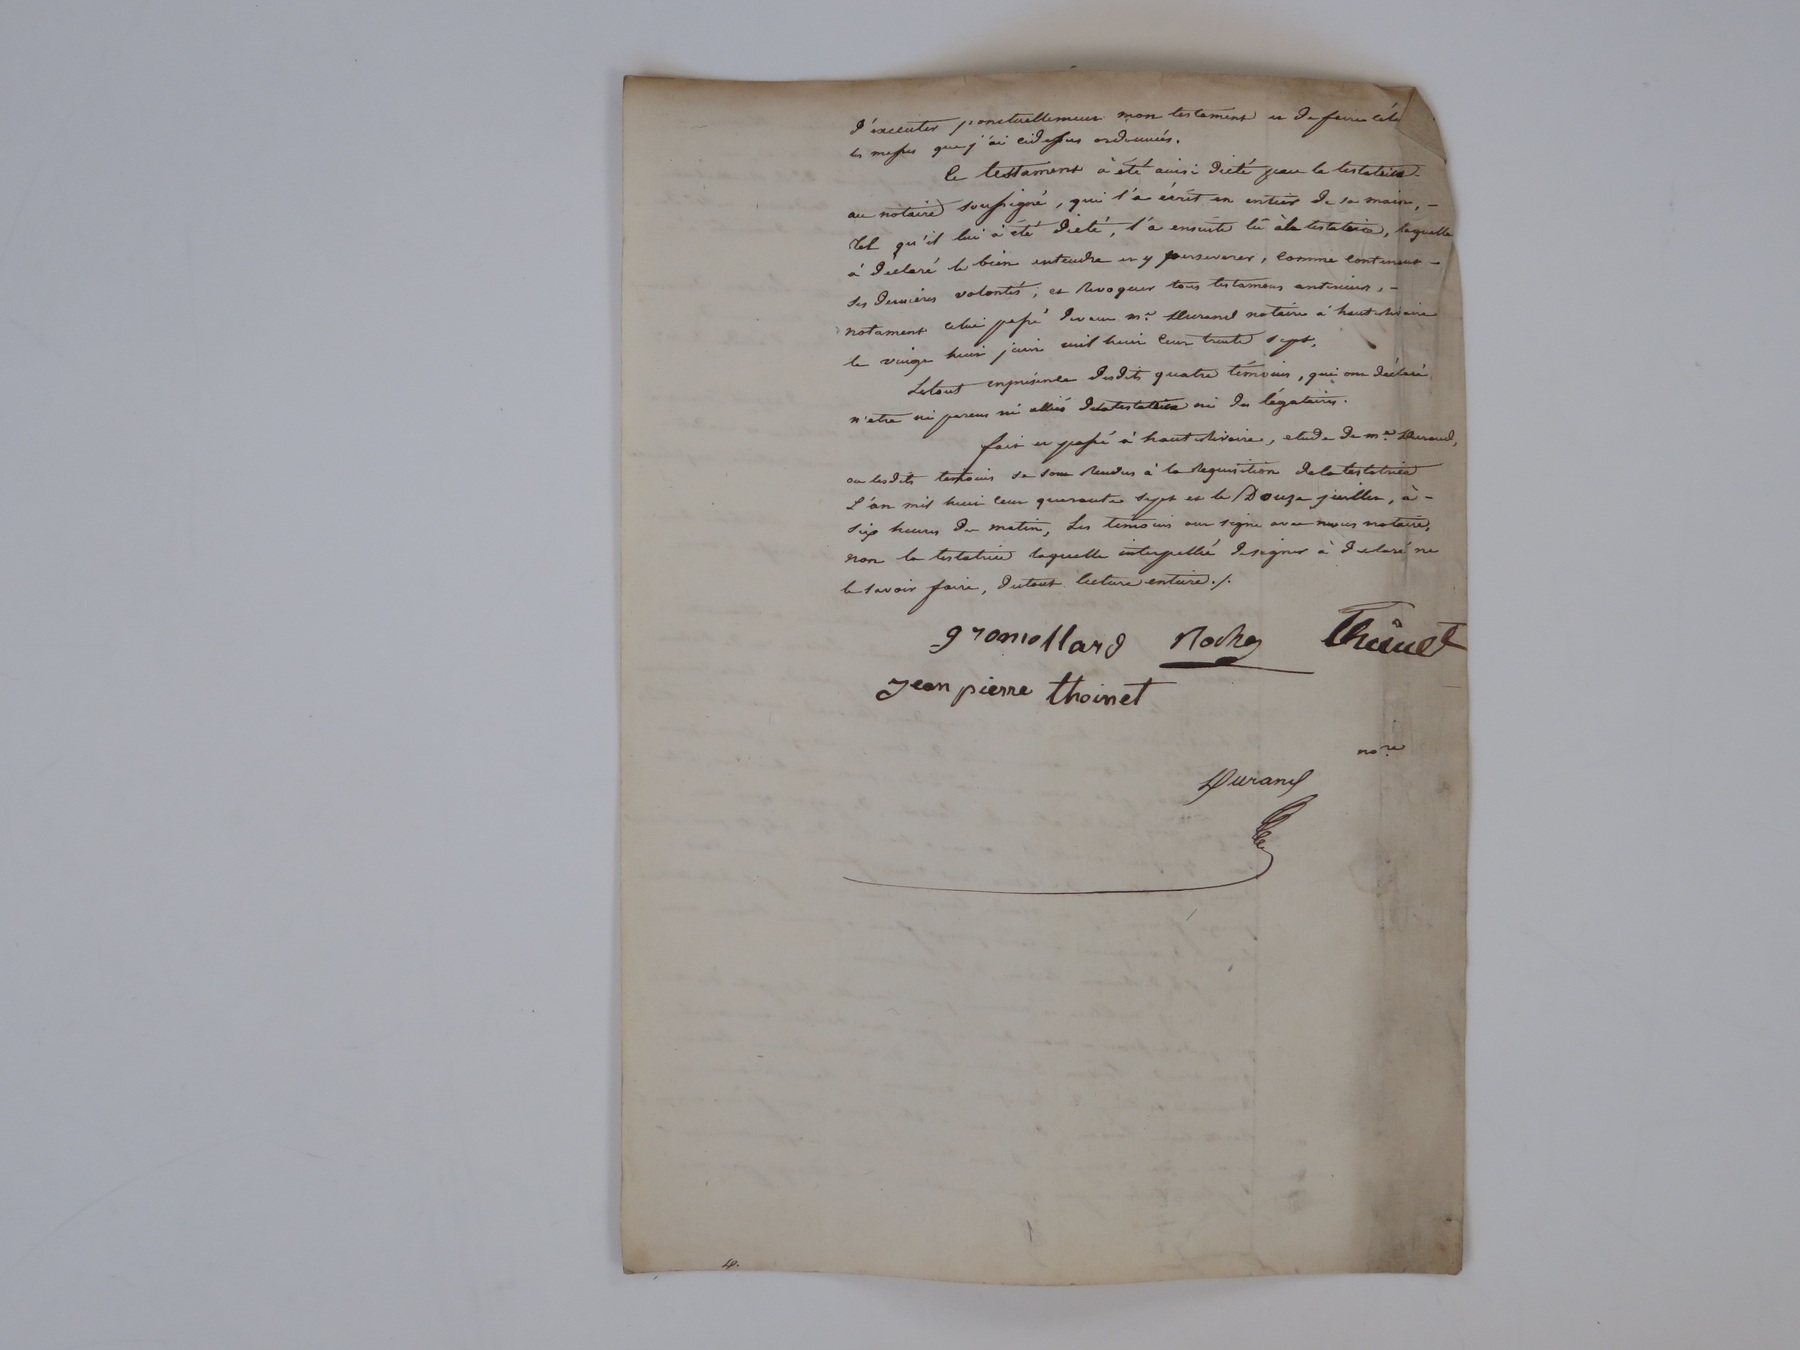 d'executer ponctuellement mon testament et de faire célé
les messes que j'ai cidessus ordonnées.
Ce testament à été ainsi dicté par la testatrice
au notaire soussigné, qui l'a écrit en entier de sa main, -
tel qu'il lui à été dicté, l'a ensuite lu à la testatrice, laquelle
à déclaré le bien entendre et y perseverer, comme contenant -
ses dernières volontés; et revoquer tous testamens anterieurs, -
notament celui passé devant me. Durand notaire à hauterivoire
le vingt huit juin mil huit cent trente sept.
Letout enprésence desdits quatre témoins, qui ont déclaré
n'etre ni parens ni alliés delatestatrice ni des légataires.
fait et passé à hauterivoire, etude de me. Durand,
ou lesdits temoins se sont rendus à la requisition dela testatrice
L'an mil huit cent quarante sept et le Douze juillet, à -
six heures du matin, Les temoins ont signé avec nous notaire,
non la testatrice laquelle interpellée designer à déclaré ne
le savoir faire, dutout lecture entiere./.
gromollard Roche Thoinet
jean pierre thoinet
nore
Durand
4.